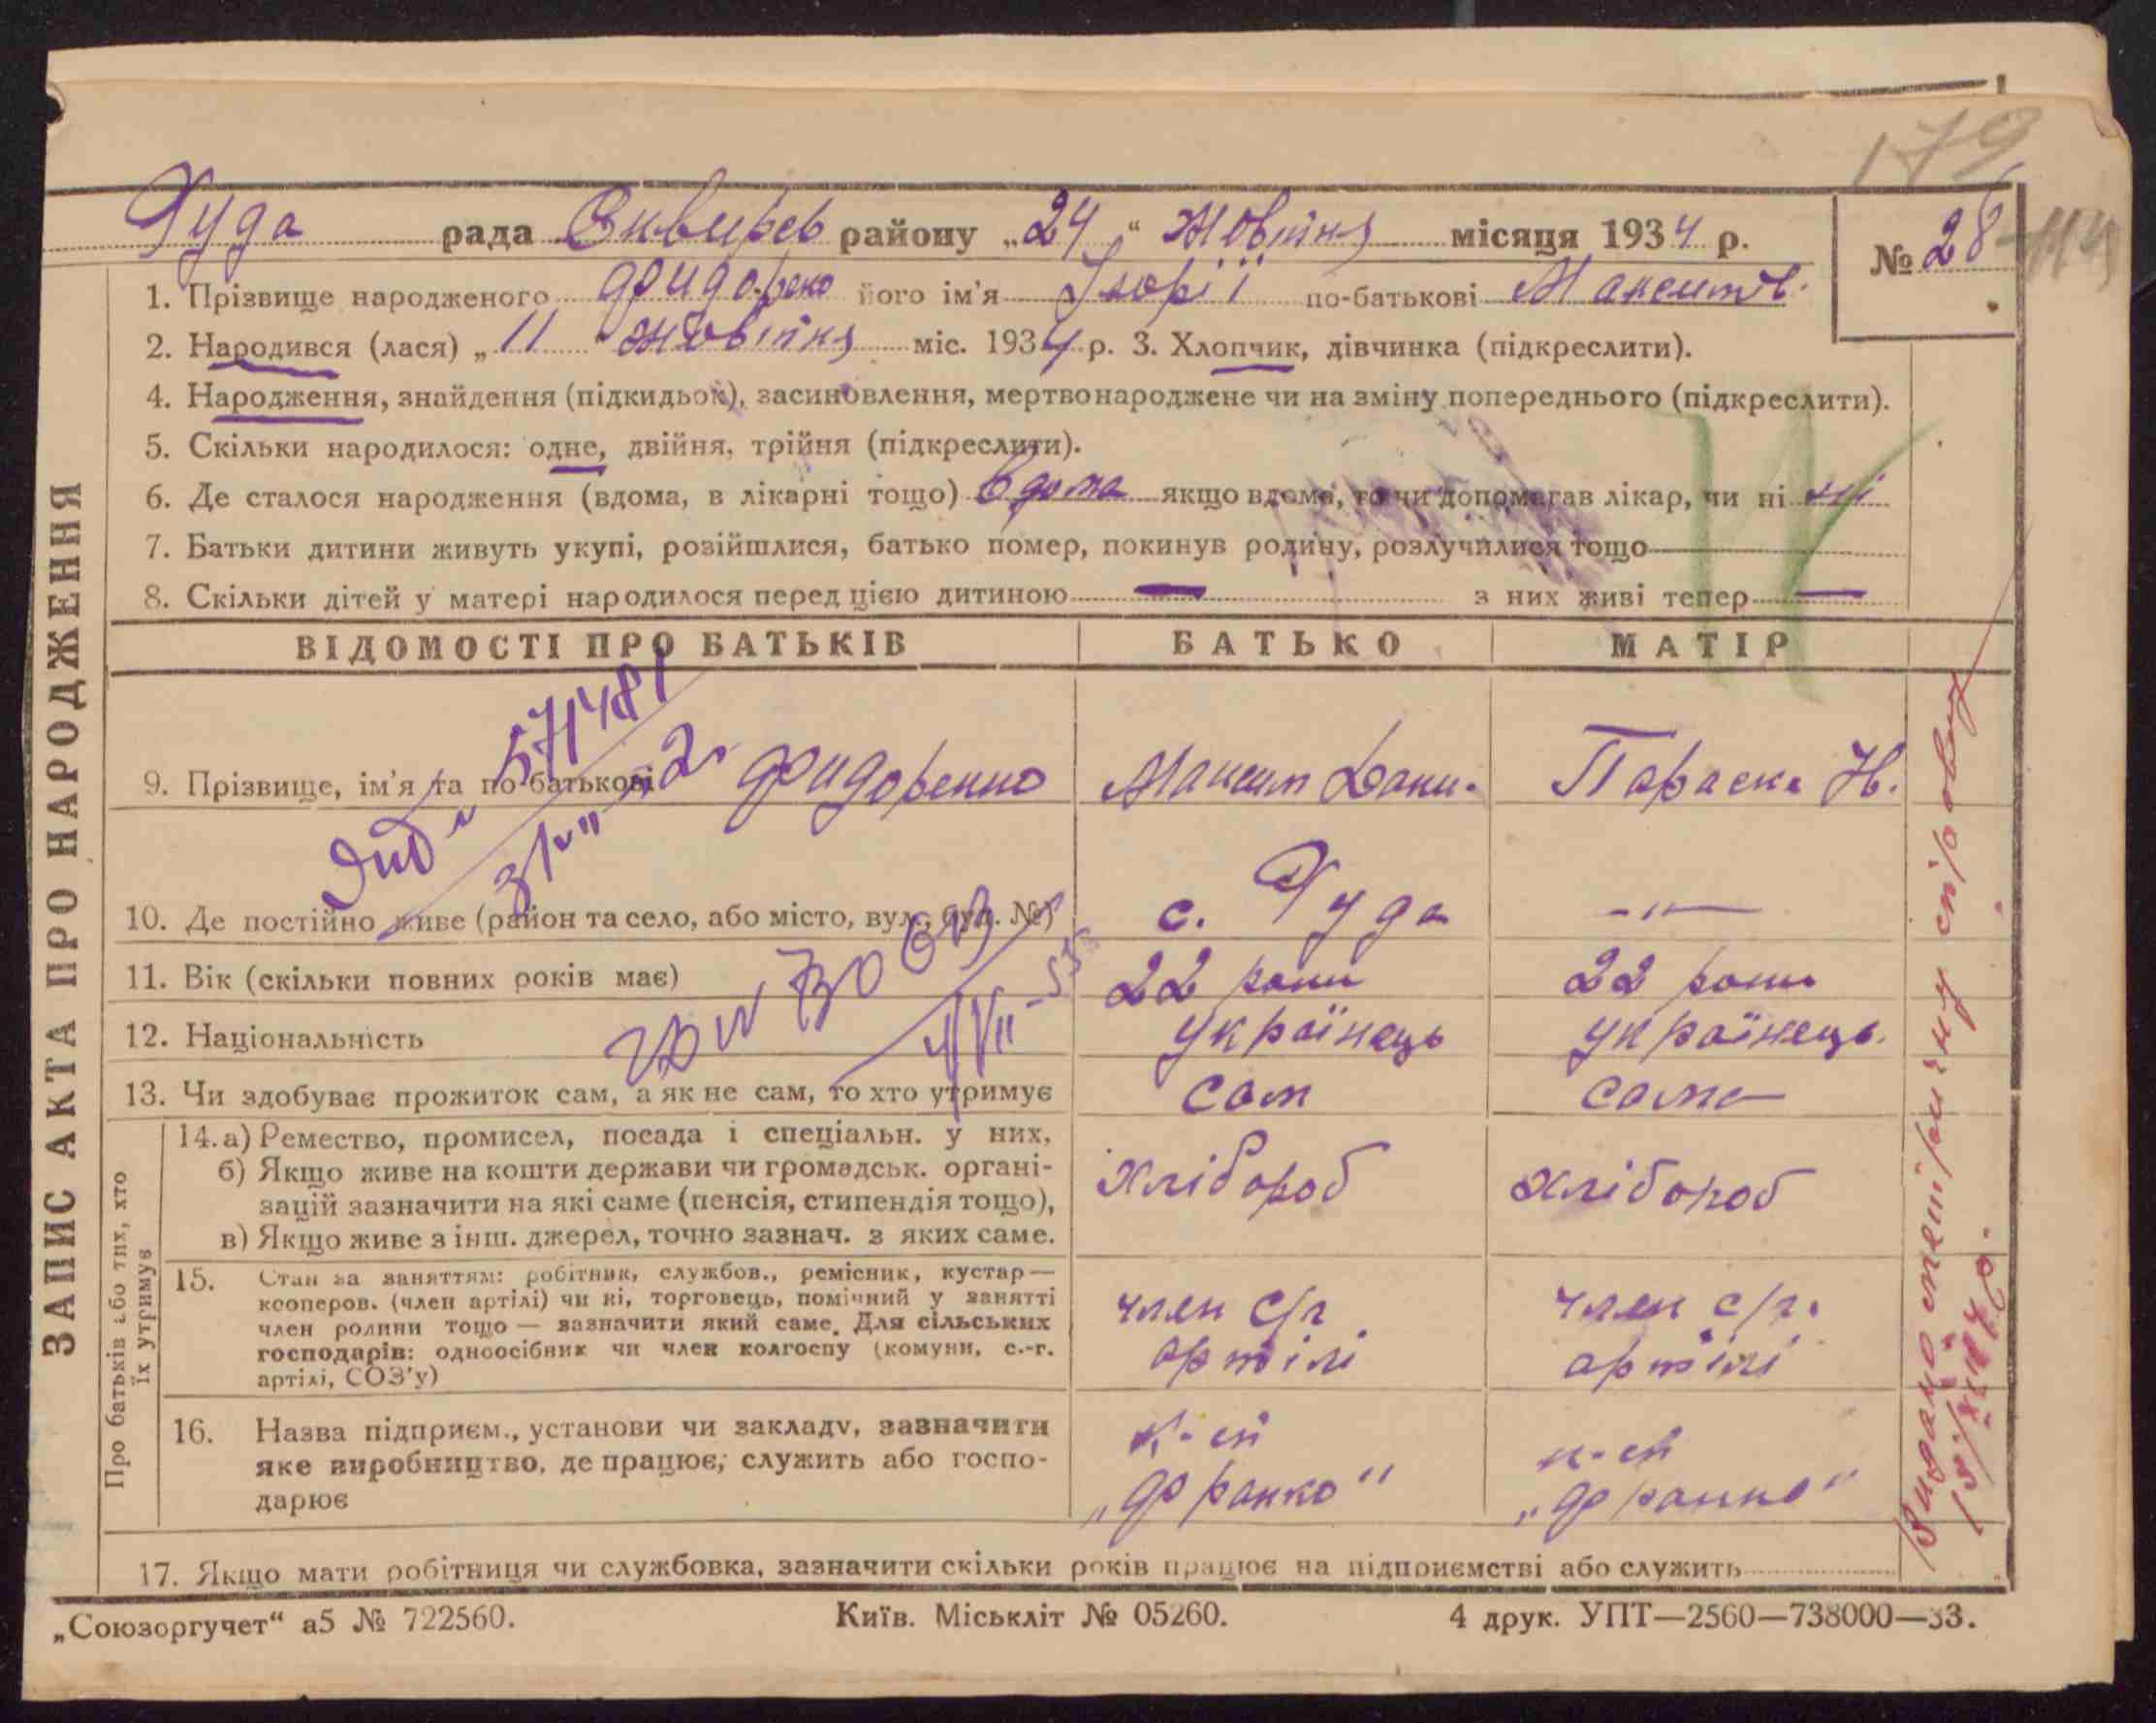 179
Руда рада Сквирсв району „24“ жовтня місяця 1934 р. № 28
1. Прізвище народженого Фидоренко його ім'я по-батькові Максимов.
2. Народився (лася) „11“ жовтня міс. 1934 р. 3. Хлопчик, дівчинка (підкреслити).
4. Народження, знайдення (підкидьок), засиновлення, мертвонароджене чи на зміну попереднього (підкреслити).
5. Скільки народилося: одне, двійня, трійня (підкреслити).
6. Де сталося народження (вдома, в лікарні тощо) вдома якщо вдома, то чи допомагав лікар, чи ні ні
7. Батьки дитини живуть укупі, розійшлися, батько помер, покинув родину, розлучилися тощо
8. Скільки дітей у матері народилося перед цією дитиною — з них живі тепер —
ЗАПИС АКТА ПРО НАРОДЖЕННЯ
ВІДОМОСТІ ПРО БАТЬКІВ БАТЬКО МАТІР
9. Прізвище, ім'я та по-батькові Фидоренко Максим Дани. Параска Н.
10. Де постійно живе (район та село, або місто, вул., буд. №) с. Руда —"—
11. Вік (скільки повних років має) 22 роки 22 роки
12. Національність українець українець.
13. Чи здобуває прожиток сам, а як не сам, то хто утримує сам сама
Про батьків або тих, хто їх утримує
14. а) Ремество, промисел, посада і спеціальн. у них, хлібороб хлібороб
б) Якщо живе на кошти держави чи громадськ. органі-
зацій зазначити на які саме (пенсія, стипендія тощо),
в) Якщо живе з інш. джерел, точно зазнач. з яких саме.
15. Стан за заняттям: робітник, службов., ремісник, кустар—
кооперов. (член артілі) чи ні, торговець, помічний у занятті
член родини тощо — зазначити який саме. Для сільських
господарів: одноосібник чи член колгоспу (комуни, с.-г.
артілі, СОЗ'у)
член с/г артілі
член с/г. артілі
16. Назва підприєм., установи чи закладу, зазначити
яке виробництво, де працює, служить або госпо-
дарює
к-сп „Франко“
к-сп „Франко“
17. Якщо мати робітниця чи службовка, зазначити скільки років працює на підприємстві або служить
„Союзоргучет“ а5 № 722560. Київ. Міськліт № 05260. 4 друк. УПТ—2560—738000—33.